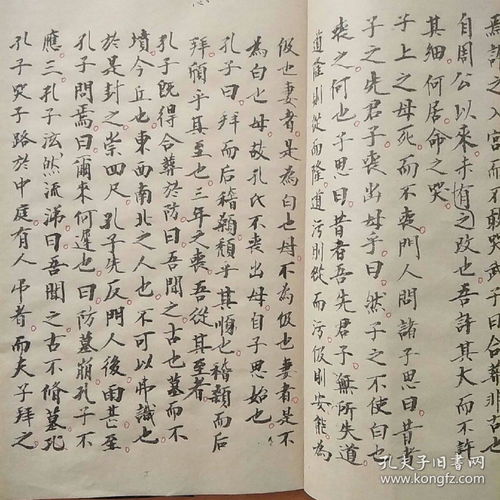 焉許之入宮而不敢哭武子曰合葬非古也
自周公以來未有之改也吾許其大而不許
其細何居命之哭
子上之母死而不喪門人問諸子思曰昔者
子之先君子喪出母乎曰然子之不使白也
喪之何也子思曰昔者吾先君子無所失道
道隆則從而隆道污則從而污伋則安能為
伋也妻者是為白也母不為伋也妻者是不
為白也母故孔氏不喪出母自子思始也
孔子曰拜而后稽顙頹乎其順也稽顙而后
拜頎乎其至也三年之喪吾從其至者
孔子既得合葬於防曰吾聞之古也墓而不
墳今丘也東西南北之人也不可以弗識也
於是封之崇四尺孔子先反門人後雨甚至
孔子問焉曰爾來何遲也曰防墓崩孔子不
應三孔子泫然流涕曰吾聞之古不脩墓死
孔子哭子路於中庭有人吊者而夫子拜之
孔夫子旧书网
www.kongfz.com